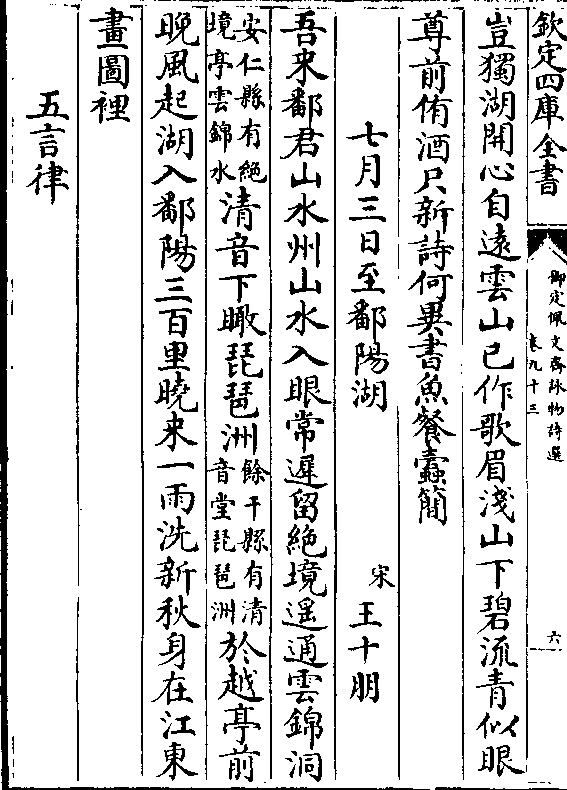 欽定四庫全書
御定佩文齋詠物詩選
卷九十三
六
豈獨湖開心自遠雲山已作歌眉淺山下碧流青似眼
尊前侑酒只新詩何異書魚餐蠹簡
七月三日至鄱陽湖
宋 王十朋
吾来鄱君山水州山水入眼常遲留絶境遥通雲錦洞
安仁縣有絶
境亭雲錦水
清音下瞰琵琶洲
餘干縣有清
音堂琵琶洲
於越亭前
晚風起湖入鄱陽三百里曉来一雨洗新秋身在江東
畫圖裡
五言律